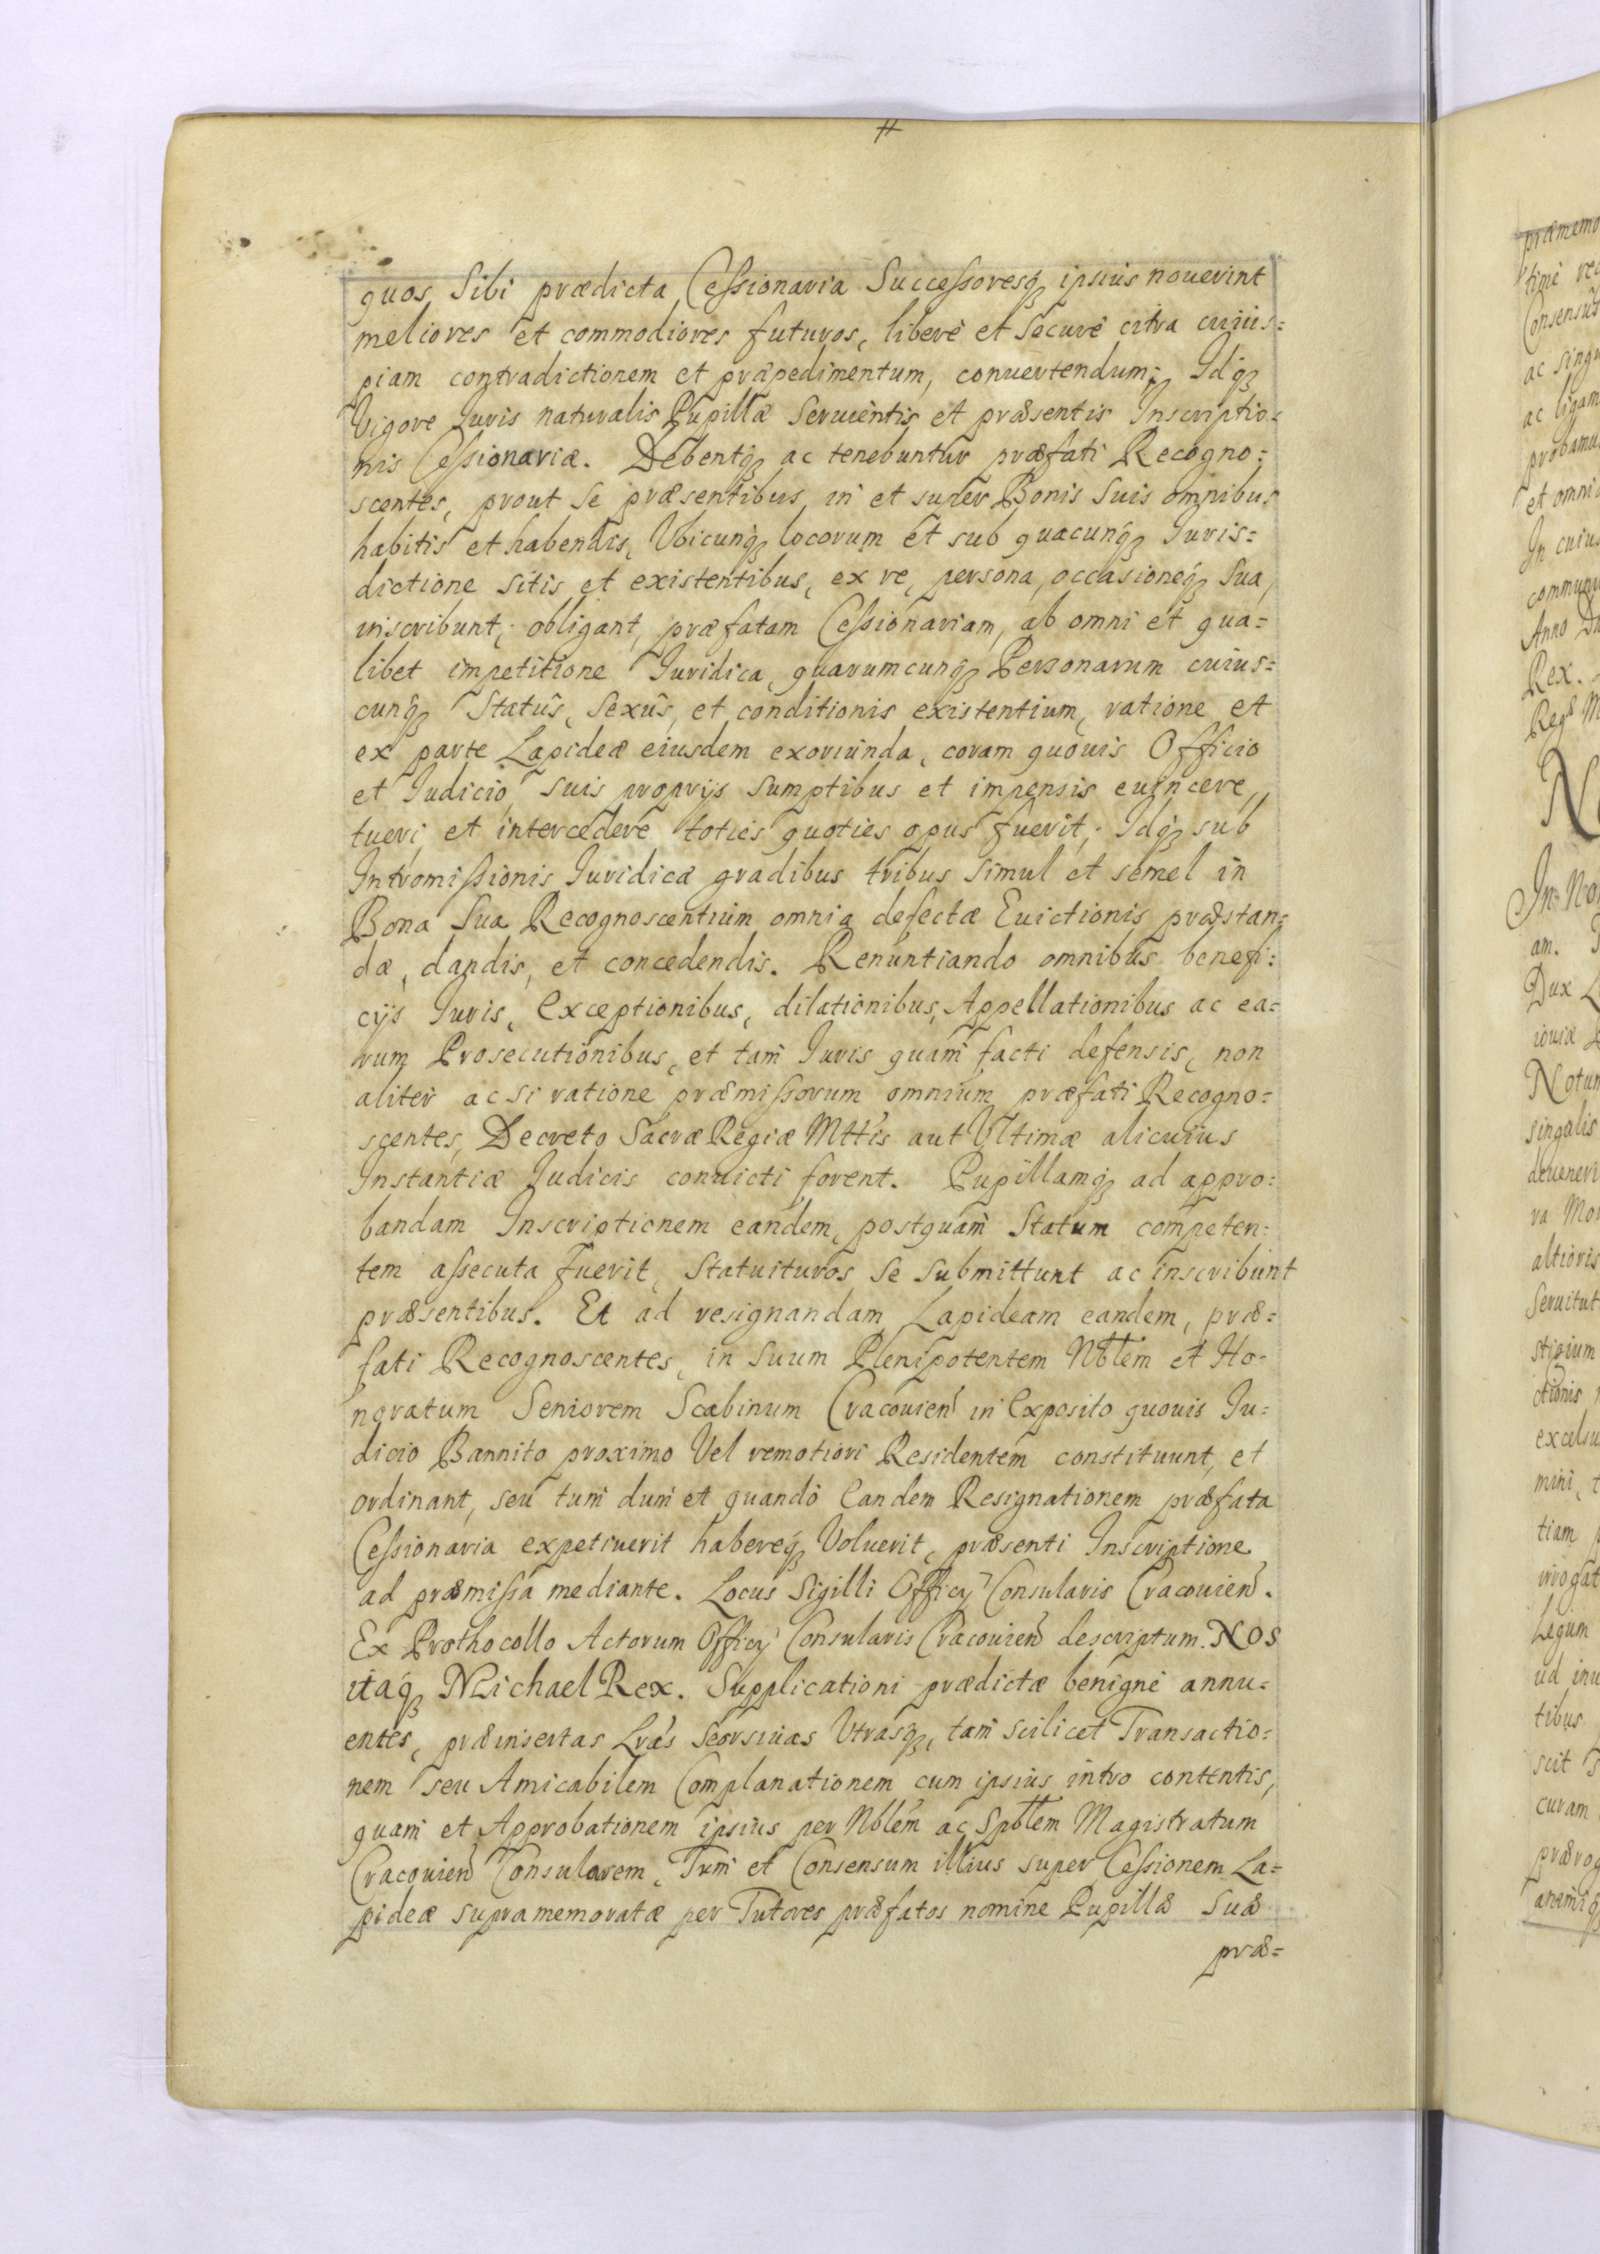 quos Sibi prædicta Cessionaria Successoresqꝫ ipsius nouerint
meliores et commodiores futuros, liberè et Securè citra cuius=
piam contradictionem et præpedimentum, conuertendum; Idqꝫ
Vigore Iuris naturalis Pupillæ Seruientis et præsentis Inscriptio=
nis Cessionariæ. Debentqꝫ ac tenebuntur præfati Recogno=
scentes, prout Se præsentibus in et super Bonis Suis omnibus
habitis et habendis, Vbicunqꝫ locorum et sub quacunqꝫ Iuris=
dictione sitis et existentibus, ex re, persona, occasioneqꝫ Sua,
inscribunt, obligant, præfatam Cessionariam, ab omni et qua=
libet impetitione Iuridica, quarumcunqꝫ Personarum cuius=
cunqꝫ Statûs, Sexûs, et conditionis existentium, ratione et
ex parte Lapideæ eiusdem exoriunda, coram quouis Officio
et Iudicio, suis proprijs Sumptibus et impensis euincere,
tueri et intercedere toties quoties opus fuerit; Idqꝫ sub
Intromissionis Iuridicæ gradibus tribus simul et semel in
Bona Sua Recognoscentium omnia defectæ Euictionis præstan=
dæ, dandis, et concedendis. Renuntiando omnibus benefi=
cijs Iuris, Exceptionibus, dilationibus, Appellationibus ac ea=
rum Prosecutionibus, et tam Iuris quam facti defensis, non
aliter ac si ratione præmissorum omnium præfati Recogno=
scentes, Decreto Sacræ Regiæ Mttis aut Vltimæ alicuius
Instantiæ Iudicis conuicti forent. Pupillamqꝫ ad appro=
bandam Inscriptionem eandem, postquam Statum competen=
tem assecuta fuerit, Statuituros Se Submittunt ac inscribunt
præsentibus. Et ad resignandam Lapideam eandem, præ=
fati Recognoscentes, in Suum Plenipotentem Nblem et Ho=
noratum Seniorem Scabinum Cracouien in Exposito quouis Iu=
dicio Bannito proximo Vel remotiori Residentem constituunt, et
ordinant, seu tum dum et quando Eandem Resignationem præfata
Cessionaria expetiuerit habereqꝫ Voluerit, præsenti Inscriptione
ad præmissa mediante. Locus Sigilli Officij Consularis Cracouien.
Ex Prothocollo Actorum Officij Consularis Cracouien descriptum. NOS
itaqꝫ Michael Rex. Supplicationi prædictæ benignè annu=
entes, præinsertas Lras Seorsiuas Vtrasqꝫ, tam scilicet Transactio=
nem seu Amicabilem Complanationem cum ipsius intro contentis,
quam et Approbationem ipsius per Nblem ac Spblem Magistratum
Cracouien Consularem, Tum et Consensum illius super Cessionem La=
pideæ supramemoratæ per Tutores præfatos nomine Pupillæ Suæ
præ=